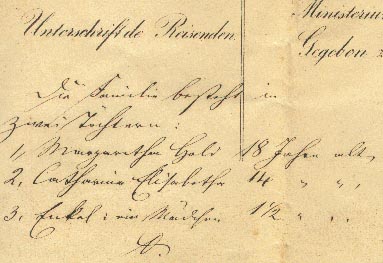 Ministeriu
Unterschrift de Reisenden.
Gegeben z
Die Familie besteht in
zwei Töchtern:
1, Margaretha Held 18 Jahre alt,
2, Catharina Elisabetha 14 " " ,
3, Enkel: ein Mädchen 1½ " . .